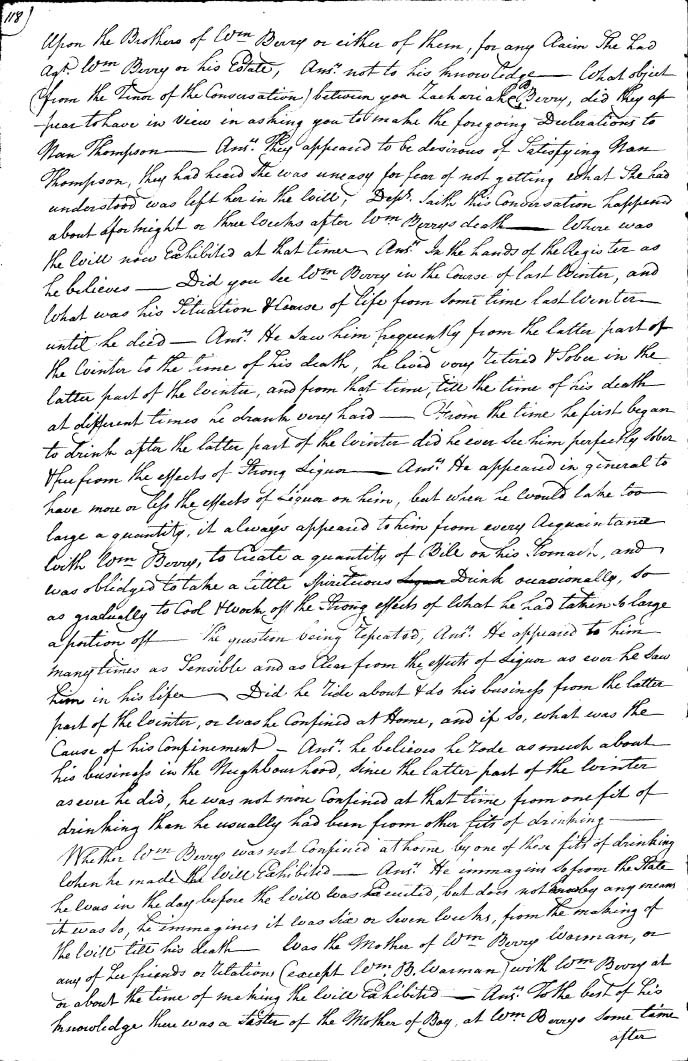 118)
Upon the Brothers of Wm Berry or either of them, for any Claim She had
Agt. Wm Berry or his Estate, Ansr. not to his knowledge — What object
(from the Tinor of the Conversation) between you Zachariah & B Berry, did they ap
-pear to have in View in asking you to make the foregoing Declerations to
Nan Thompson — Ansr. They appeared to be desirous of Satisfying Nan
Thompson, they had heard She was uneasy for fear of not getting what She had
understood was left her in the Will, Dept. Saith this Conversation happened
about a fortnight or three Weeks after Wm Berrys death — Where was
the Will now Exhibited at that time — Ansr. In the hands of the Register as
he believes — Did you See Wm Berry in the Course of last Winter, and
What was his Situation & Course of life from Some time last Winter
until he died — Ansr. He Saw him frequently from the latter part of
the Winter to the time of his death, he lived very retired & Sober in the
latter part of the Winter, and from that time, till the time of his death
at different times he drank very hard — From the time he first began
to drink after the latter part of the Winter did he ever See him perfectly Sober
& free from the effects of Strong Liquor — Ansr. He appeared in general to
have more or less the effects of Liquor on him, but when he Would take too
large a quantity, it always appeared to him from every Acquaintance
With Wm Berry, to Create a quantity of Bile on his Stomach, and
was oblidged to take a little Spirituous Drink occasionally, So
as gradually to Cool & Work off the Strong effects of What he had taken So large
a portion off — The question being repeated, Ansr. He appeared to him
many times as Sensible and as Clear from the effects of Liquor as ever he Saw
him in his life — Did he ride about & do his business from the latter
part of the Winter, or was he Confined at Home, and if So, what was the
Cause of his Confinement — Ansr. he believes he rode as much about
his business in the Neighbourhood, Since the latter part of the Winter
as ever he did, he was not more Confined at that time from one fit of
drinking than he usually had been from other fits of drinking —
Whether Wm Berry was not Confined at home by one of those fits of drinking
When he made the Will Exhibited — Ansr. He immagins So from the State
he was in the day before the Will was Executed, but does not know by any means
it was So, he immagines it was Six or Seven Weeks, from the making of
the Will till his death — Was the Mother of Wm Berry Warman, or
any of her friends or relations (except Wm B. Warman) with Wm Berry at
or about the time of making the Will Exhibited — Ansr. To the best of his
knowledge there was a Sister of the Mother of Boy, at Wm Berrys Some time
after